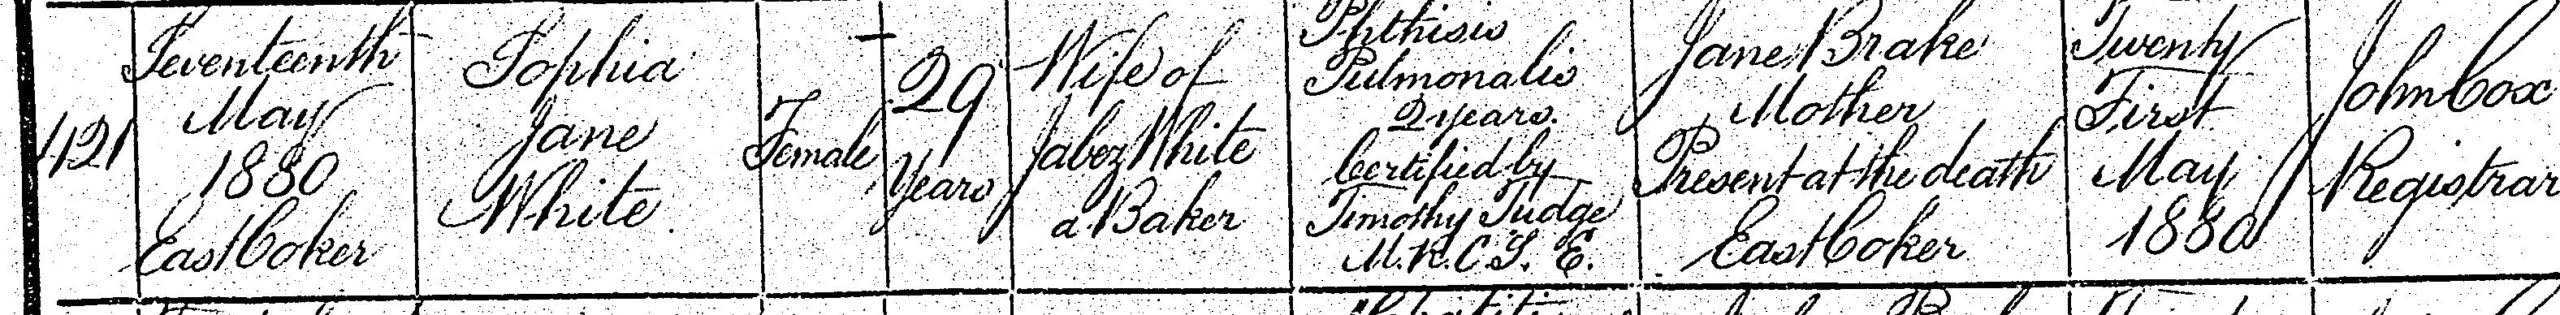 421
Seventeenth
May
1880
East Coker
Sophia
Jane
White
Female
29
Years
Wife of
Jabez White
a Baker
Phthisis
Pulmonalis
2 years.
Certified by
Timothy Judge
M.R.C.S. E.
Jane Brake
Mother
Present at the death
East Coker
Twenty
First
May
1880
John Cox
Registrar